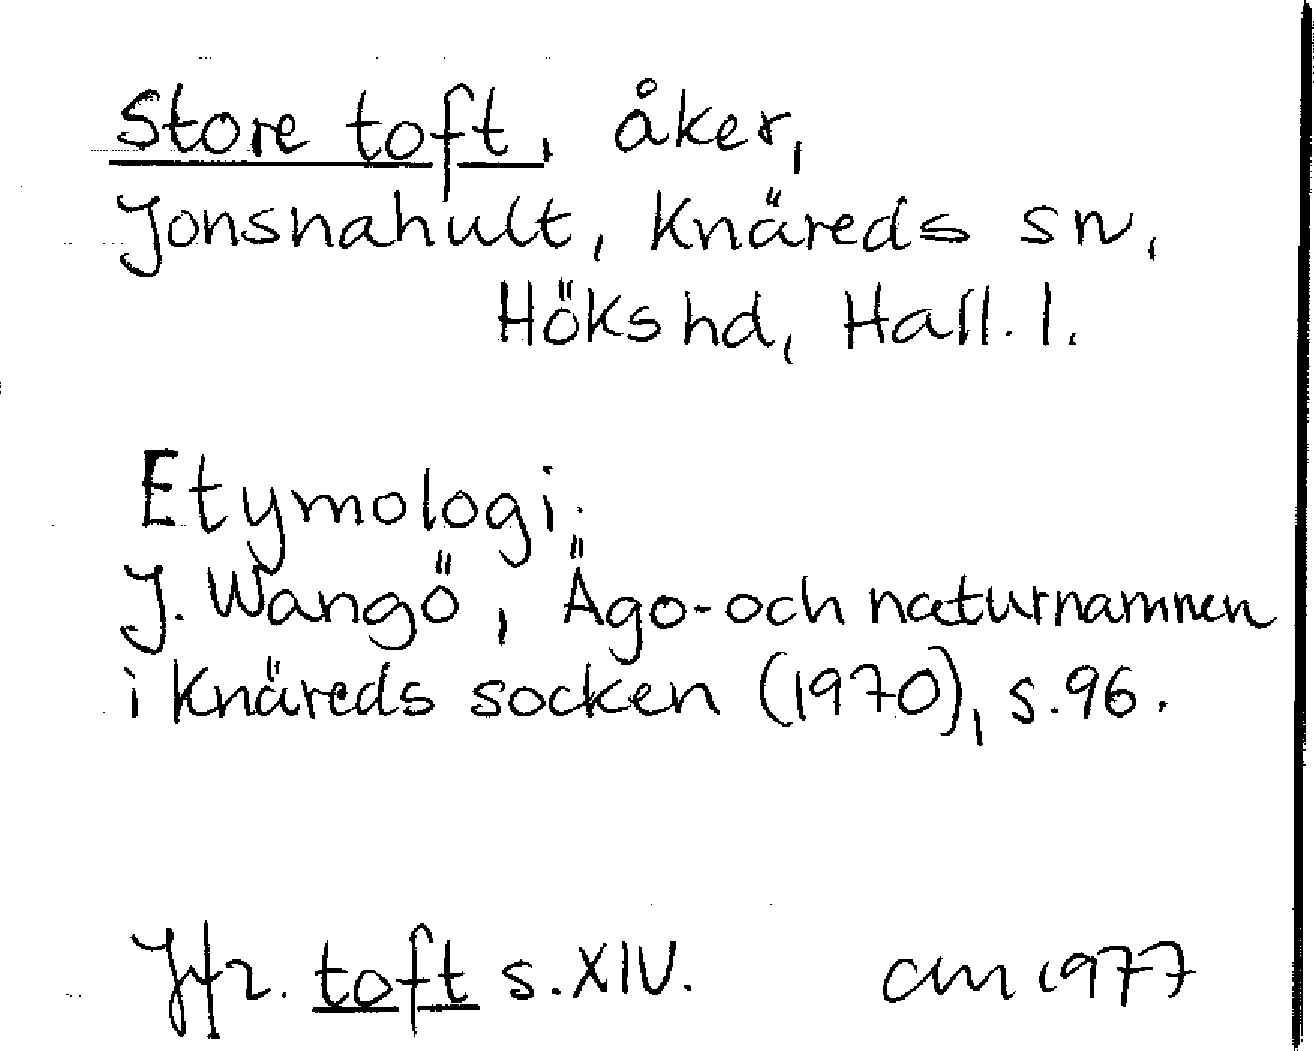 Store toft, åker,
Jonsnahult, Knäreds sn,
Höks hd, Hall. l.
Etymologi:
J. Wangö, Ägo- och naturnamnen
i Knäreds socken (1970), s.96.
Jfr. toft s.XIV. cm 1977